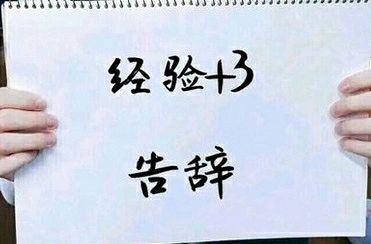 经验+3
告辞